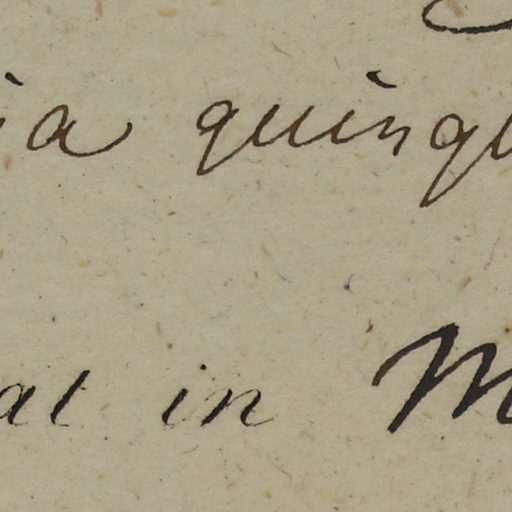 ia quinq
at in M